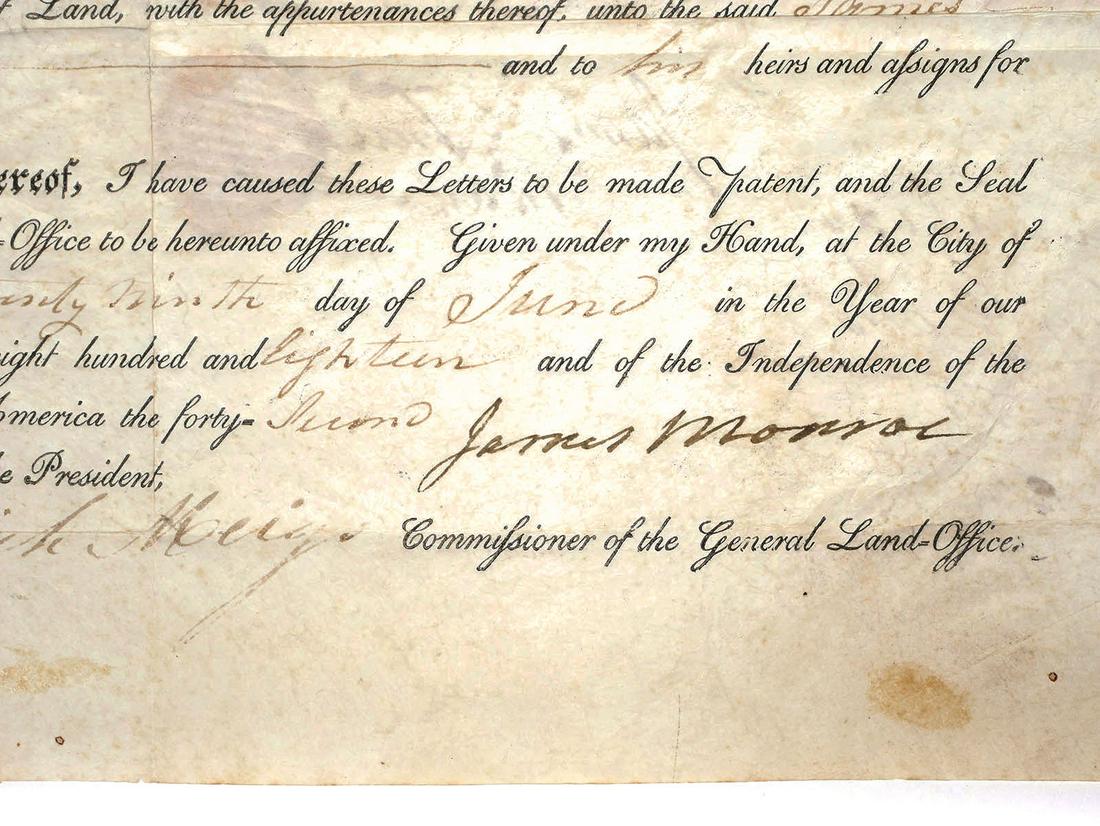 f Land, with the appurtenances thereof, unto the said James
and to his heirs and aſsigns for
ereof, I have caused these Letters to be made Patent, and the Seal
-Office to be hereunto affixed. Given under my Hand, at the City of
enty ninth day of June in the Year of our
ight hundred and Eighteen and of the Independence of the
America the forty-Second James Monroe
e President,
Meigs Commiſsioner of the General Land-Office.